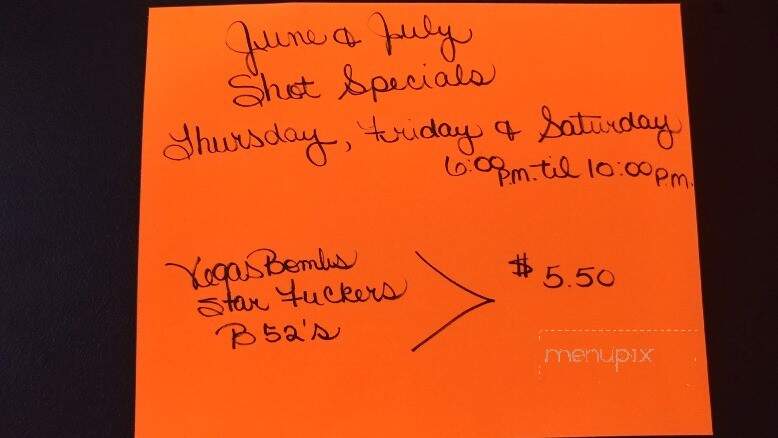 June & July
Shot Specials
Thursday, Friday & Saturday
6:00 p.m. til 10:00 p.m.
Vegas Bombs
Star Fuckers
B52's
$5.50
menupix